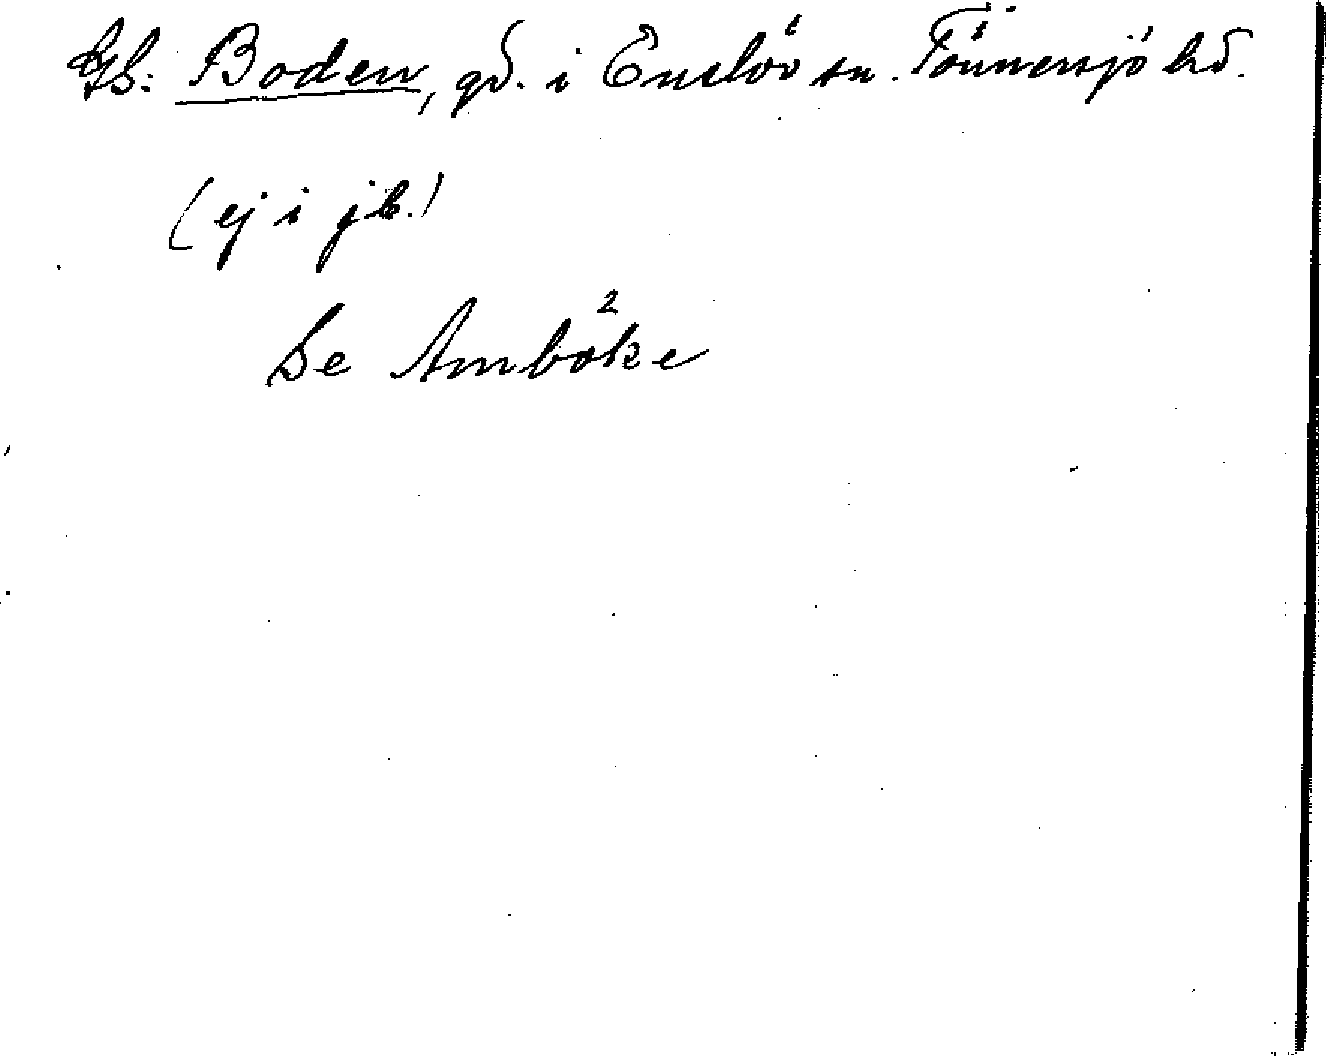 Gs: Boden, gd. i Enslöv sn. Tönnersjö hd.
(ej i jb.)
Se Amböke
2